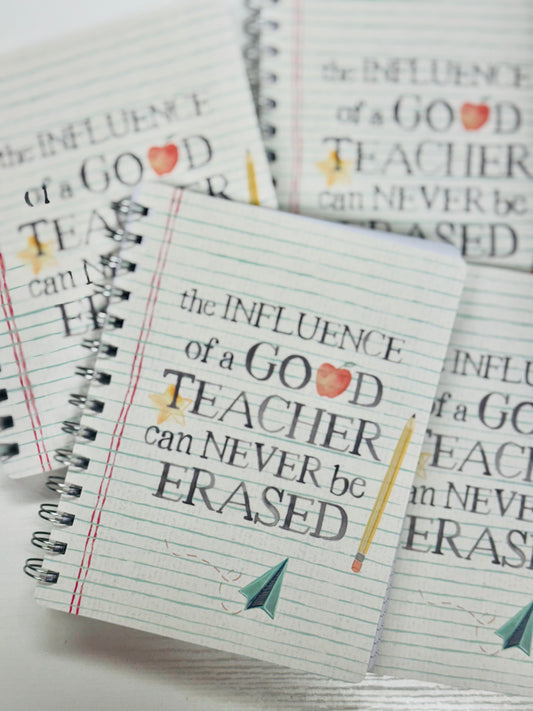 the INFLUENCE
of a GOOD
TEACHER
can NEVER be
ERASED
the INFLUENCE
of a GOOD
TEACHER
can NEVER be
ERASED
the INFLUENCE
of a GOOD
TEACHER
can NEVER be
ERASED